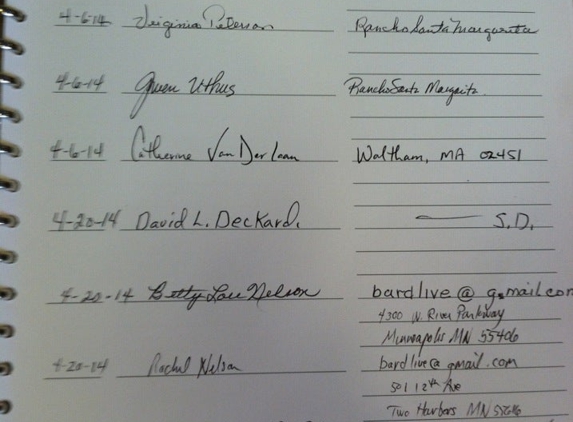 4-6-14 Virginia Peterson Rancho Santa Margarita
4-6-14 Gwen Uthus Rancho Santa Margarita
4-6-14 Catherine Van Der Laan Waltham, MA 02451
4-20-14 David L. Deckard. — S.D.
4-20-14 Betty Lou Nelson bardlive@gmail.com
4300 W. River Parkway
Minneapolis MN 55406
4-20-14 Rachel Nelson bardlive@gmail.com
501 12th Ave
Two Harbors MN 55616